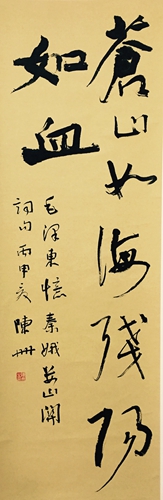 蒼山如海殘陽
如血
毛澤東憶秦娥婁山關
詞句丙申冬陳